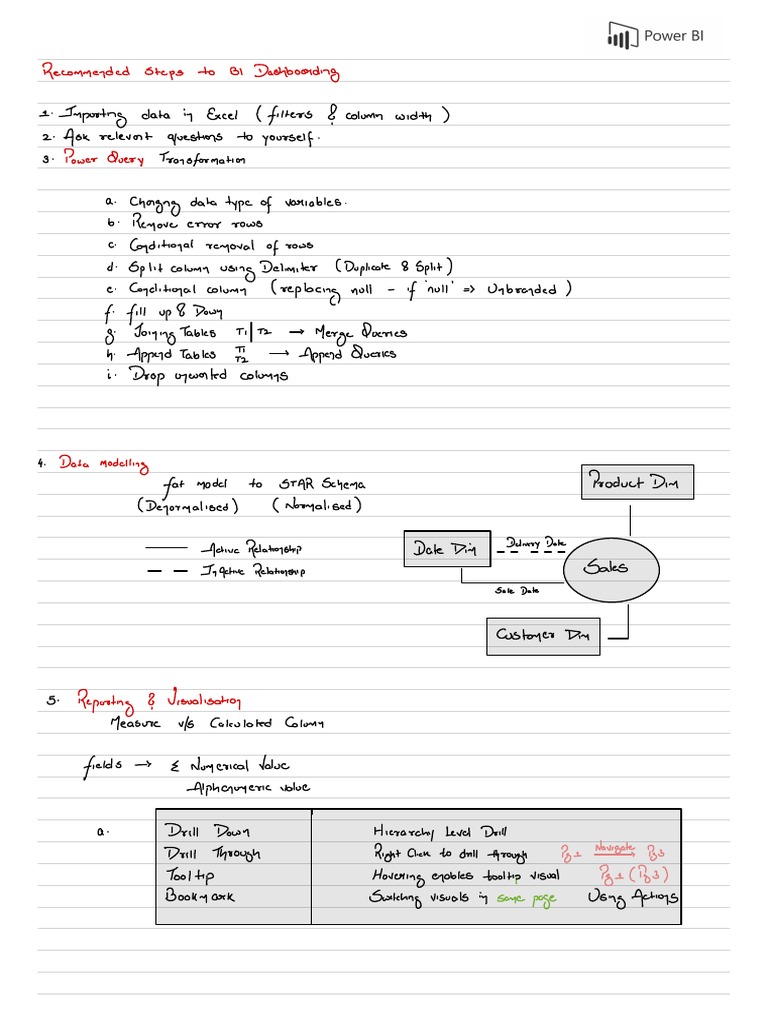 Power BI
Recommended Steps to BI Dashboarding
1. Importing data in Excel ( filters & column width )
2. Ask relevant questions to yourself.
3. Power Query Transformation
a. Changing data type of variables.
b. Remove error rows
c. Conditional removal of rows
d. Split column using Delimiter (Duplicate & Split)
e. Conditional column (replacing null - if 'null' => Unbranded )
f. fill up & Down
g. Joining Tables T1 | T2 → Merge Queries
h. Append Tables T1 T2 → Append Queries
i. Drop unwanted columns
4. Data modelling
fat model to STAR Schema
(Denormalised) (Normalised)
Active Relationship
InActive Relationship
Product Dim
Date Dim
Delivery Date
Sales
Sale Date
Customer Dim
5. Reporting & Visualisation
Measure v/s Calculated Column
fields → Σ Numerical Value
Alphanumeric value
a. Drill Down Hierarchy Level Drill
Drill Through Right Click to drill through Pg 1 Navigate → Pg 3
Tooltip Hovering enables tooltip visual Pg 1 (Pg 3)
Bookmark Switching visuals in same page Using Actions